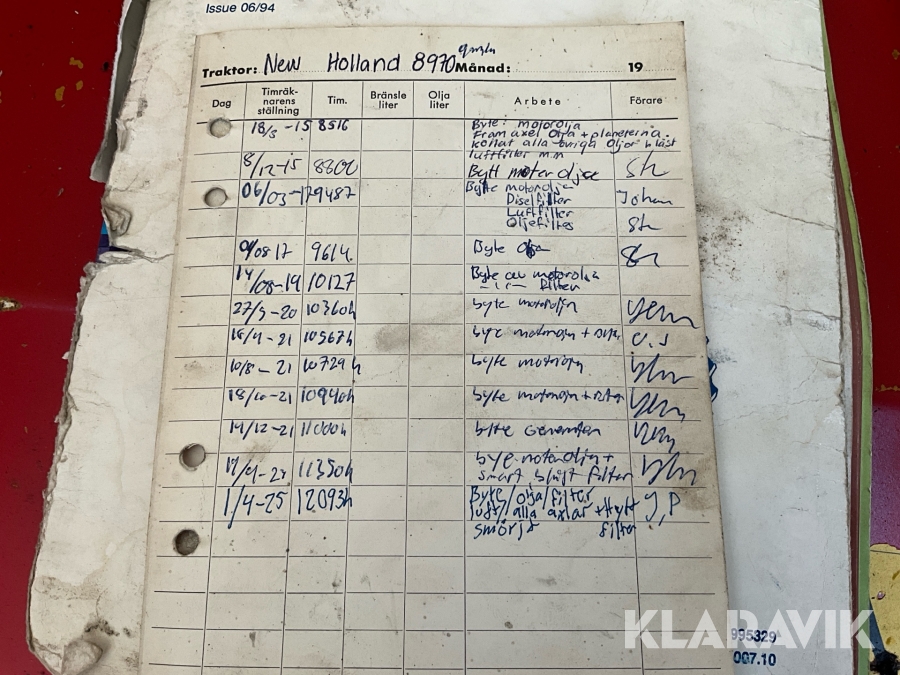 Issue 06/94
Traktor: New Holland 8970 Månad: 19
Dag Timräknarens ställning Tim. Bränsle liter Olja liter Arbete Förare
18/5 -15 8516 Byte: motorolja
Framaxel olja + planeterna.
kollat alla övriga oljor blåst
luftfilter m.m
8/12-15 8800 Bytt motorolja
06/03-17 9487 Byte motorolja Johan
Diselfilter
Luftfilter
Oljefilter
/08 17 9614. Byte olja
14/08-19 10127 Byte av motorolja
-11- filter
27/5-20 10360h byte motorolja
-21 10567h byte motorolja +
10/8-21 10729h byte motorolja
18/10-21 10940h byte motorolja +
14/12-21 11000h byte Generator
11350h motorolja +
smart filter
1/4-25 12093h Byte/olja/filter J,P
luft/alla axlar + Hytt
smörjt filter
KLARAVIK
995329
007.10